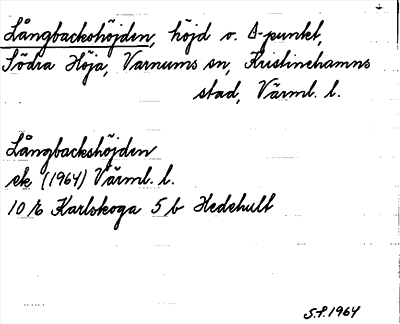 Långbackshöjden, höjd o. Δ-punkt,
Södra Höja, Varnums sn, Kristinehamns
stad, Värml. l.
Långbackshöjden
ek (1964) Värml. l.
10 E Karlskoga 5 b Hedehult
S.F. 1964